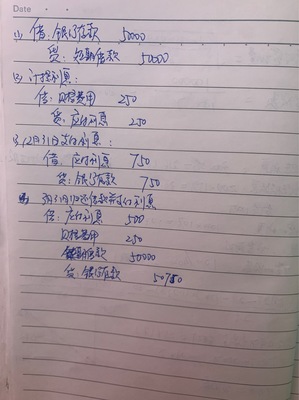 Date
(1) 借：银行存款 50000
贷：短期借款 50000
(2) 计提利息：
借：财务费用 250
贷：应付利息 250
(3) 12月31日支付利息：
借：应付利息 750
贷：银行存款 750
3月31日归还借款并支付利息
借：应付利息 500
财务费用 250
短期借款 50000
贷：银行存款 50750